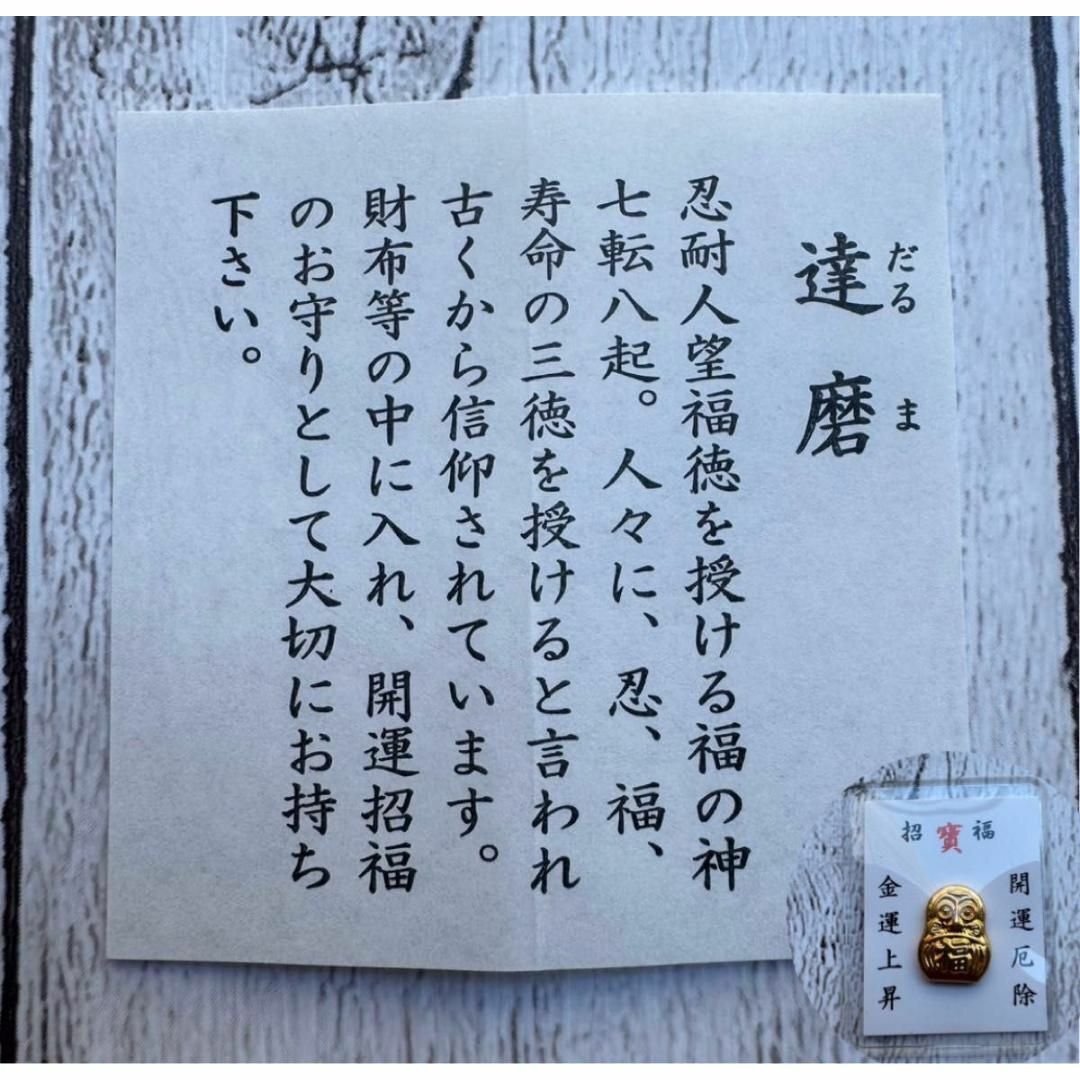 達磨
だるま
忍耐人望福徳を授ける福の神
七転八起。人々に、忍、福、
寿命の三徳を授けると言われ
古くから信仰されています。
財布等の中に入れ、開運招福
のお守りとして大切にお持ち
下さい。
招寳福
開運厄除
金運上昇
福